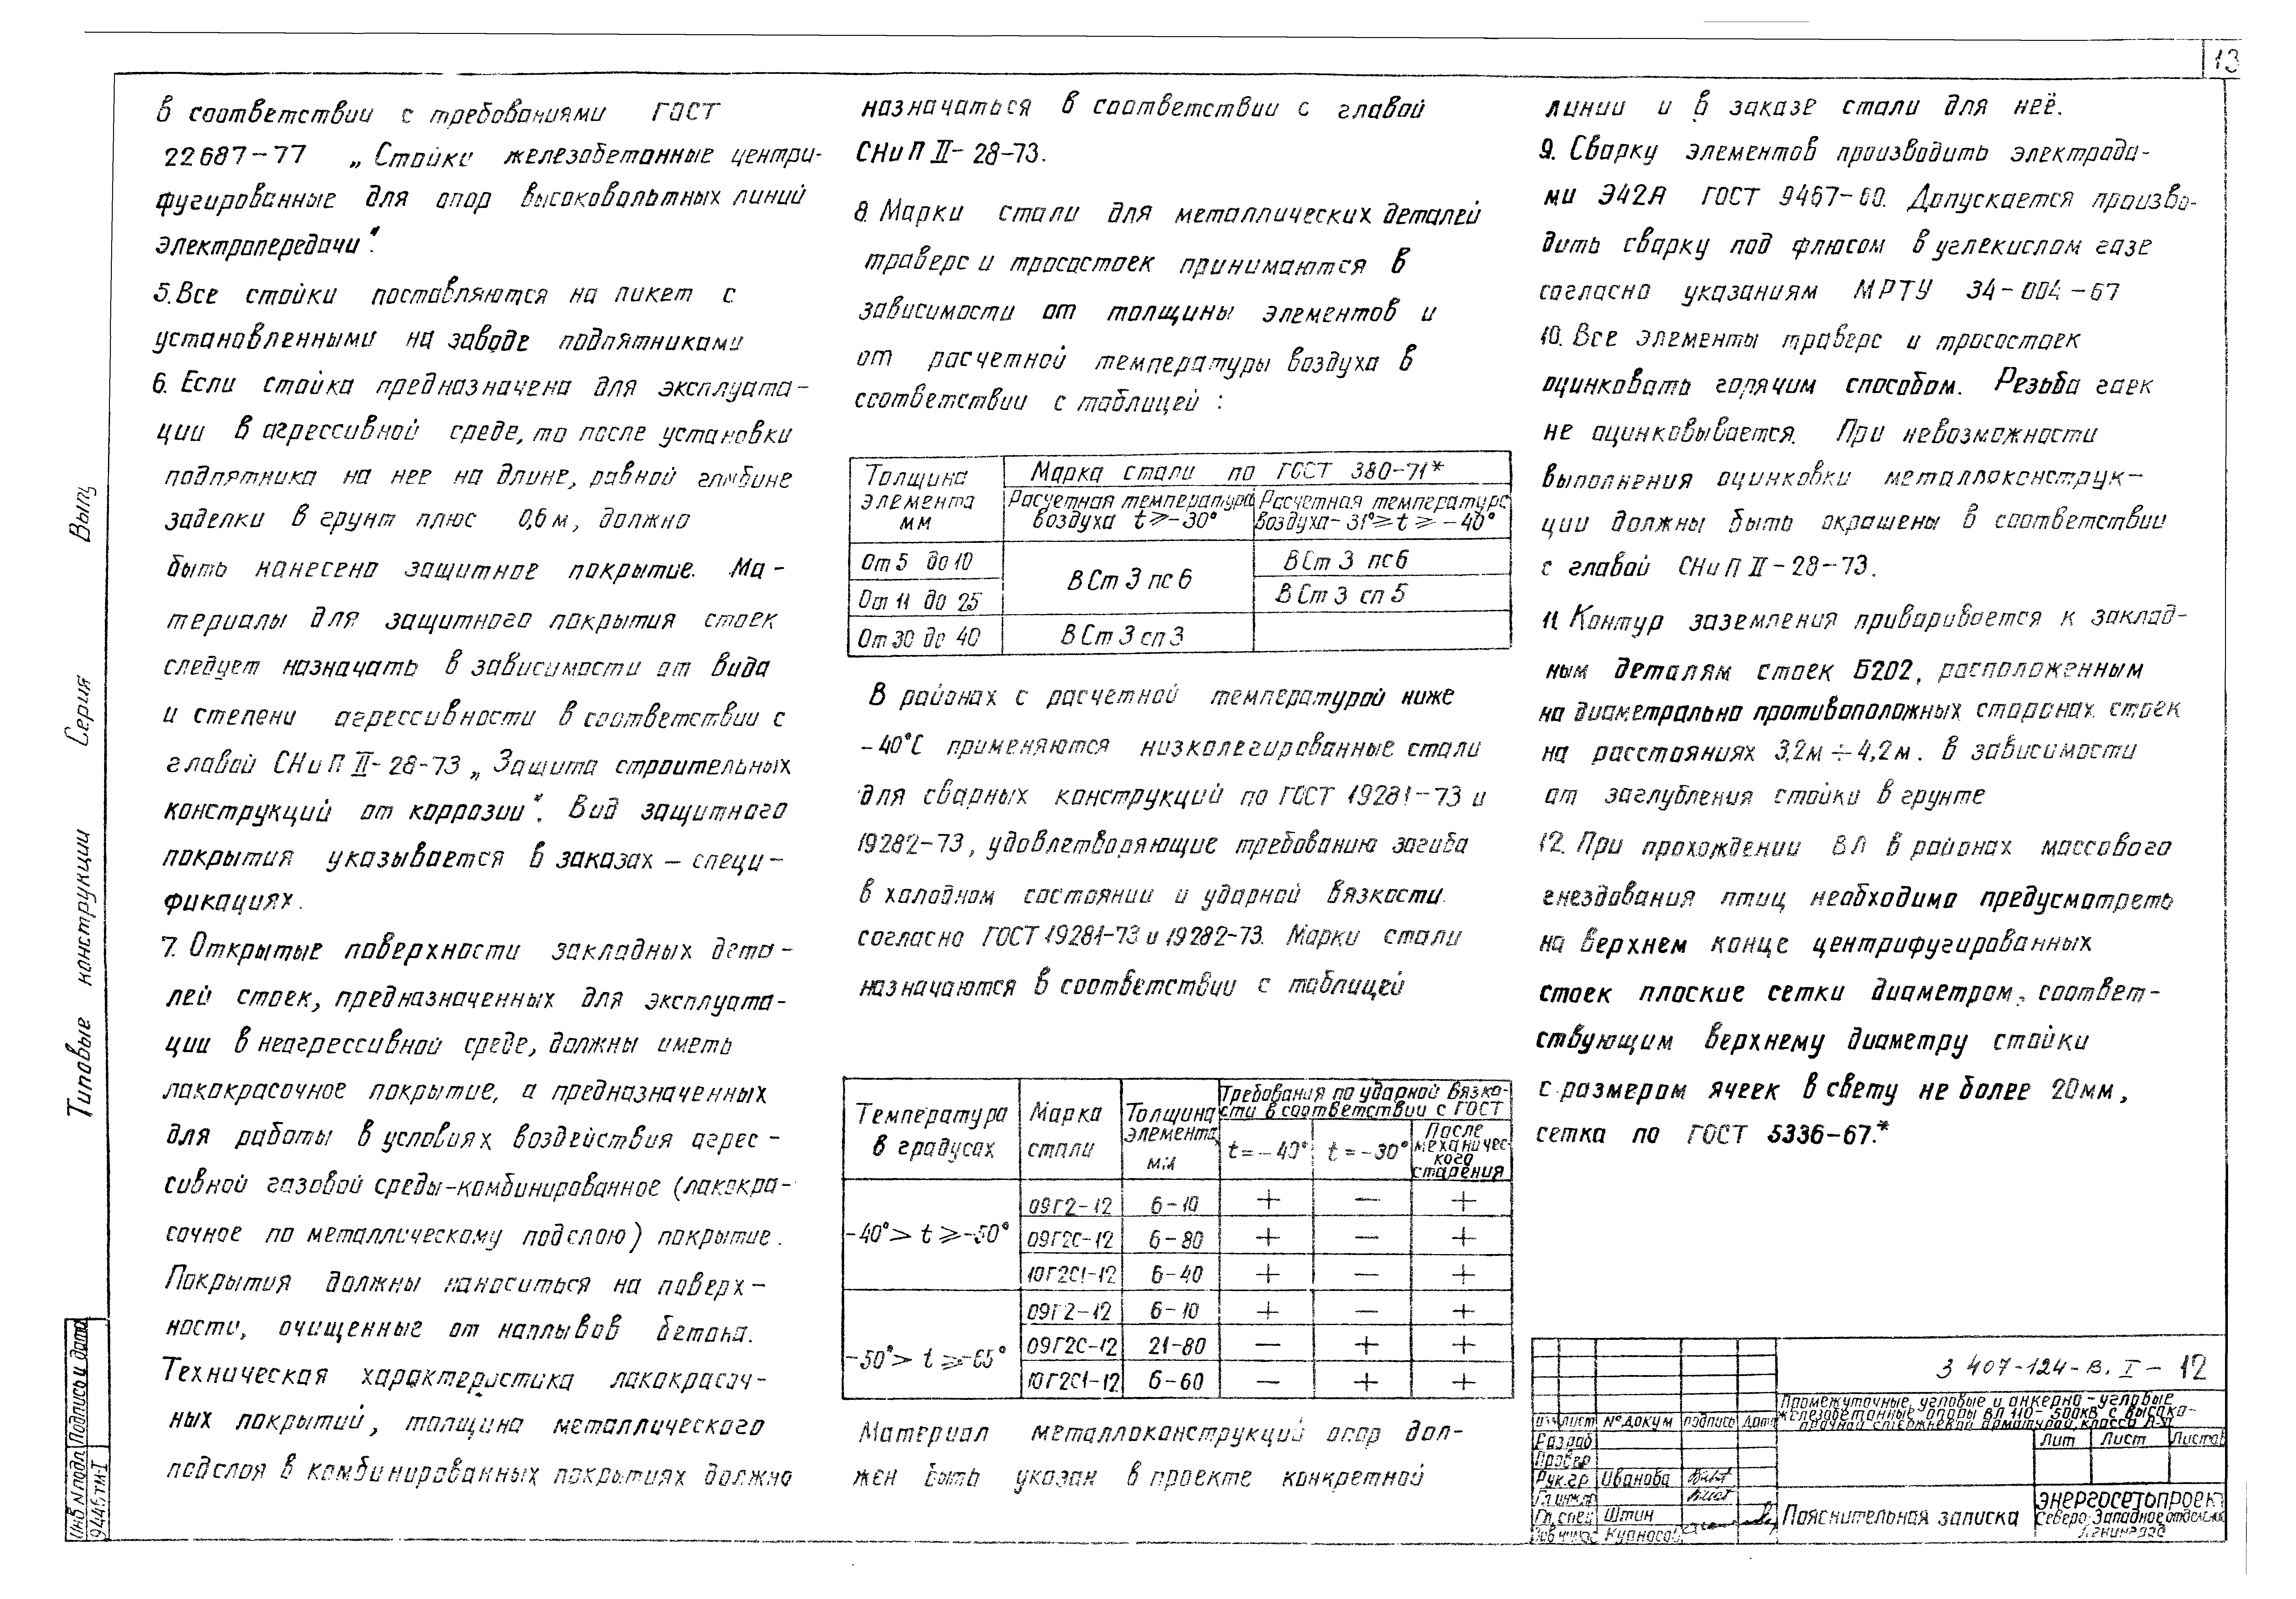 13
в соответствии с требованиями ГОСТ
22687-77 „Стойки железобетонные центри-
фугированные для опор высоковольтных линий
электропередачи".
5. Все стойки поставляются на пикет с
установленными на заводе подпятниками
6. Если стойка предназначена для эксплуата-
ции в агрессивной среде, то после установки
подпятника на нее на длине, равной глубине
заделки в грунт плюс 0,6 м, должно
быть нанесено защитное покрытие. Ма-
териалы для защитного покрытия стоек
следует назначать в зависимости от вида
и степени агрессивности в соответствии с
главой СНиП II-28-73 „Защита строительных
конструкций от коррозии". Вид защитного
покрытия указывается в заказах - специ-
фикациях.
7. Открытые поверхности закладных дета-
лей стоек, предназначенных для эксплуата-
ции в неагрессивной среде, должны иметь
лакокрасочное покрытие, а предназначенных
для работы в условиях воздействия агрес-
сивной газовой среды-комбинированное (лакокра-
сочное по металлическому подслою) покрытие.
Покрытия должны наноситься на поверх-
ности, очищенные от наплывов бетона.
Техническая характеристика лакокрасоч-
ных покрытий, толщина металлического
подслоя в комбинированных покрытиях должно
назначаться в соответствии с главой
СНиП II-28-73.
8. Марки стали для металлических деталей
траверс и тросостоек принимаются в
зависимости от толщины элементов и
от расчетной температуры воздуха в
соответствии с таблицей :
Толщина элемента мм
Марка стали по ГОСТ 380-71*
Расчетная температура воздуха t ⩾ -30°
Расчетная температура воздуха -31° ⩾ t ⩾ -40°
От 5 до 10
ВСт 3 пс 6
ВСт 3 пс6
От 11 до 25
ВСт 3 сп 5
От 30 до 40
ВСт 3 сп 3
В районах с расчетной температурой ниже
-40°С применяются низколегированные стали
для сварных конструкций по ГОСТ 19281-73 и
19282-73, удовлетворяющие требованию загиба
в холодном состоянии и ударной вязкости.
согласно ГОСТ 19281-73 и 19282-73. Марки стали
назначаются в соответствии с таблицей
Температура в градусах
Марка стали
Толщина элемента мм
Требования по ударной вязко-
сти в соответствии с ГОСТ
t = -40°
t = -30°
После механичес-
кого старения
-40° > t ⩾ -50°
09Г2-12 6-10 + — +
09Г2С-12 6-80 + — +
10Г2С1-12 6-40 + — +
-50° > t ⩾ -65°
09Г2-12 6-10 + — +
09Г2С-12 21-80 — + +
10Г2С1-12 6-60 — + +
Материал металлоконструкций опор дол-
жен быть указан в проекте конкретной
линии и в заказе стали для неё.
9. Сварку элементов производить электрода-
ми Э42А ГОСТ 9467-60. Допускается произво-
дить сварку под флюсом в углекислом газе
согласно указаниям МРТУ 34-004-67
10. Все элементы траверс и тросостоек
оцинковать горячим способом. Резьба гаек
не оцинковывается. При невозможности
выполнения оцинковки металлоконструк-
ции должны быть окрашены в соответствии
с главой СНиП II-28-73.
11 Контур заземления приваривается к заклад-
ным деталям стоек Б202, расположенным
на диаметрально противоположных сторонах стоек
на расстояниях 3,2м ÷ 4,2м. в зависимости
от заглубления стойки в грунте
12. При прохождении ВЛ в районах массового
гнездования птиц необходимо предусмотреть
на верхнем конце центрифугированных
стоек плоские сетки диаметром, соответ-
ствующим верхнему диаметру стойки
с размером ячеек в свету не более 20мм,
сетка по ГОСТ 5336-67.*
3 407-124-в. I - 12
Промежуточные, угловые и анкерно-угловые
железобетонные опоры ВЛ 110-500кВ с высоко-
прочной стержневой арматурой класса
Лист № докум подпись Дата
Лит Лист Листов
Разраб
Провер
Рук.гр Иванова
Гл.инж.пр
Гл.спец Штин
Пояснительная записка
ЭНЕРГОСЕТЬПРОЕКТ
Северо-Западное отделение
Ленинград
Типовые конструкции Серия Вып
Инв N подл Подпись и дата
9446тм-I